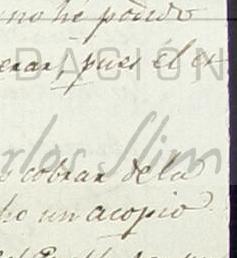 no he podido
DACIÓN
erar, pues él es
Carlos Slim
s cobrar de la
ho un acopio